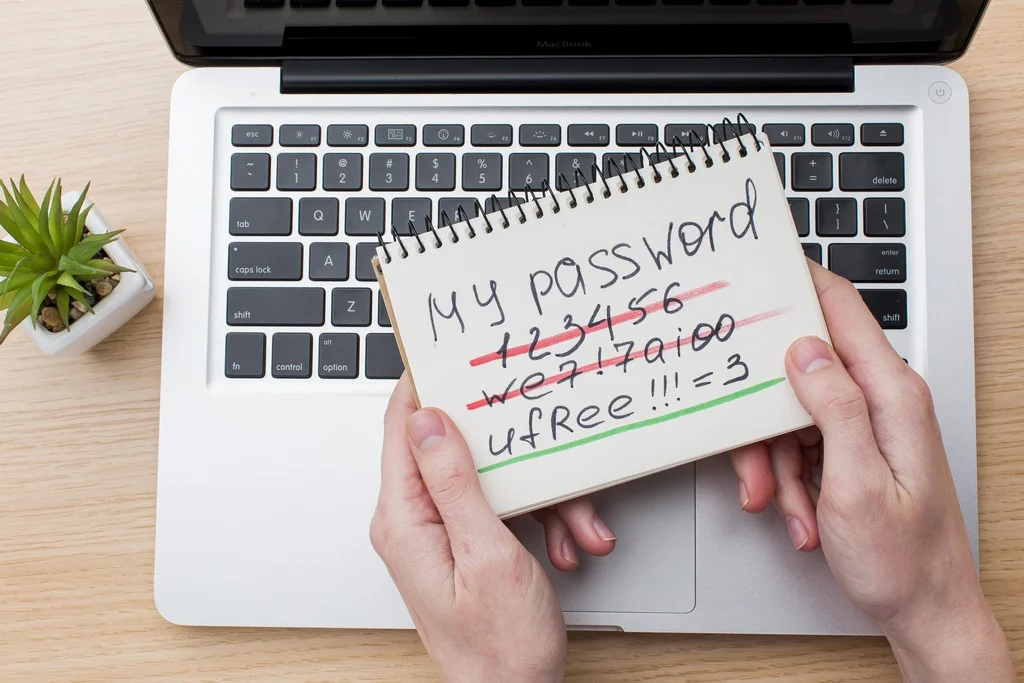 MacBook
esc F1 F2 F3 F4 F5 F6 F7 F8 F11 F12
~ ! @ # $ % ^ & +
` 1 2 3 4 5 6 = delete
tab Q W E R } |
] \
caps lock A enter
return
shift Z shift
fn control alt
option
My password
123456
we7!7aioo
ufRee!!!=3